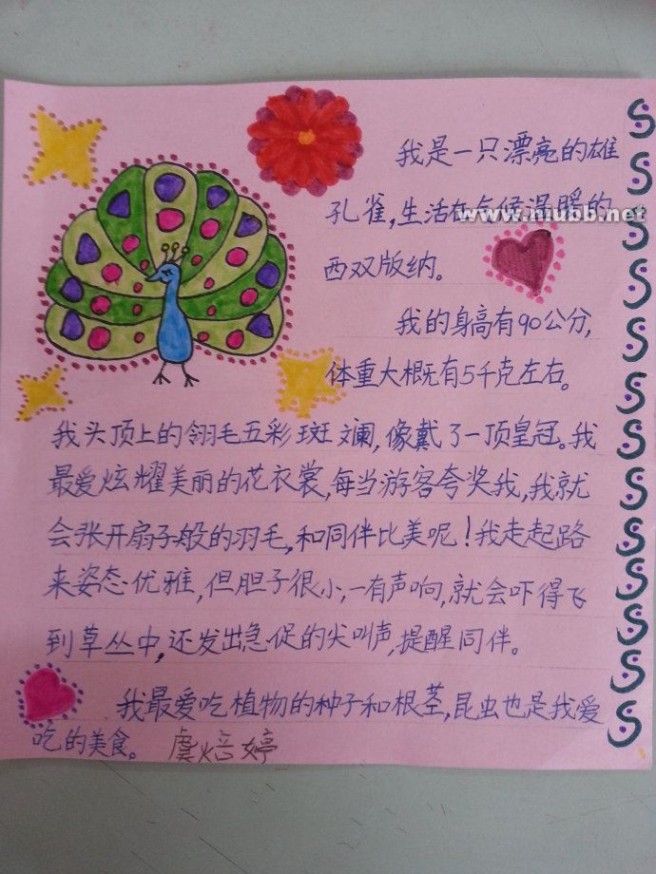 我是一只漂亮的雄
孔雀,生活在气候温暖的
www.mubb.net
西双版纳。
我的身高有90公分,
体重大概有5千克左右。
我头顶上的翎毛五彩斑斓,像戴了一顶皇冠。我
最爱炫耀美丽的花衣裳,每当游客夸奖我,我就
会张开扇子般的羽毛,和同伴比美呢!我走起路
来姿态优雅,但胆子很小,一有声响,就会吓得飞
到草丛中,还发出急促的尖叫声,提醒同伴。
我最爱吃植物的种子和根茎,昆虫也是我爱
吃的美食。 虞焙婷